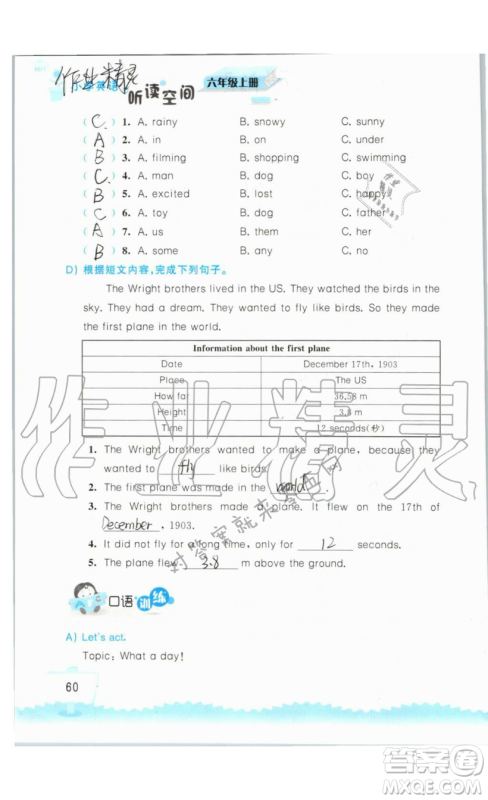 作业精灵
小学英语
听读空间
六年级上册
( C ) 1. A. rainy B. snowy C. sunny
( A ) 2. A. in B. on C. under
( B ) 3. A. filming B. shopping C. swimming
( C ) 4. A. man B. dog C. boy
( B ) 5. A. excited B. lost C. happy
( C ) 6. A. toy B. dog C. father
( A ) 7. A. us B. them C. her
( B ) 8. A. some B. any C. no
D) 根据短文内容，完成下列句子。
The Wright brothers lived in the US. They watched the birds in the
sky. They had a dream. They wanted to fly like birds. So they made
the first plane in the world.
Information about the first plane
Date December 17th, 1903
Place The US
How far 36.58 m
Height 3.8 m
Time 12 seconds(秒)
1. The Wright brothers wanted to make a plane, because they
wanted to fly like birds.
2. The first plane was made in the world.
3. The Wright brothers made a plane. It flew on the 17th of
December, 1903.
4. It did not fly for a long time, only for 12 seconds.
5. The plane flew 3.8 m above the ground.
口语训练
A) Let's act.
Topic: What a day!
60
作业精灵
对答案就来零五网
答案圈
MXQE.COM